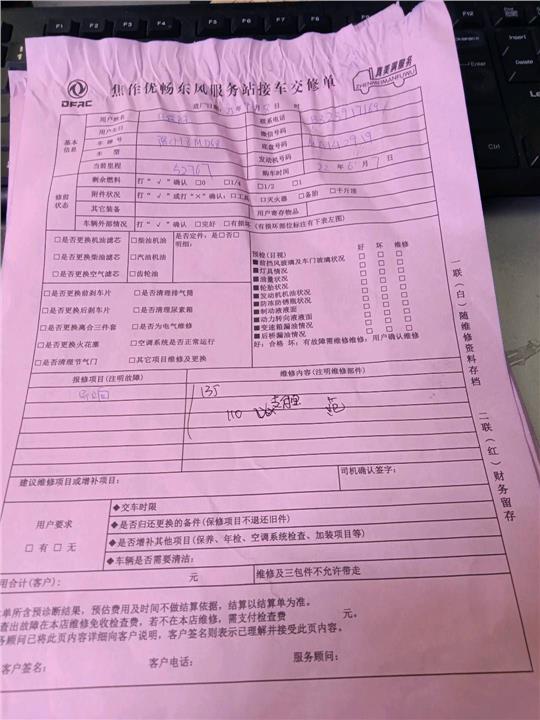 DFAC
焦作优畅东风服务站接车交修单
真美满服务
ZHENMEIMANFUWU
进厂日期: 年 月 日 时
基本信息
用户姓名
联系电话
用户生日
微信号码
车牌号
底盘号码
车型
发动机号码
当前里程 52767
购车时间 年 6 月 日
修前状态
剩余燃料 打“√”确认 □0 □1/4 □1/2 □1
附件状况 打“√”或打“×”确认: □工具 □灭火器 □备胎 □千斤顶
其它装备
用户寄存物品
车辆外部情况 打“√”确认 □完好 □有损坏(有损坏部位标注有下表左图)
□是否更换机油滤芯 □柴油机油
□是否更换柴油滤芯 □汽油机油
□是否更换空气滤芯 □齿轮油
是否定件: 是□否□
明细:
□是否更换前刹车片 □是否清理排气筒
□是否更换后刹车片 □是否清理尿素箱
□是否更换离合三件套 □是否为电气维修
□是否更换火花塞 □空调系统是否正常运行
□是否清理节气门 □其它项目维修及更换
预检(目视) 好 坏 维修
■前挡风玻璃及车门玻璃状况 □ □ □
■灯具情况 □ □ □
■油量状况 □ □ □
■轮胎状况 □ □ □
■发动机机油状况 □ □ □
■防冻防锈瓶状况 □ □ □
■制动液液面 □ □ □
■动力转向液液面 □ □ □
■变速箱漏油情况 □ □ □
■后桥漏油情况 □ □ □
好: 合格 坏: 有故障需维修维修: 用户确认维修
报修项目(注明故障)
维修内容(注明维修部件)
135
110
建议维修项目或增补项目:
司机确认签字:
用户要求
□有 □无
◆交车时限
◆是否归还更换的备件(保修项目不退还旧件)
◆是否增补其他项目(保养、年检、空调系统检查、加装项目等)
◆车辆是否需要清洁:
用合计(客户): 元
维修及三包件不允许带走
单所含预诊断结果, 预估费用及时间不做结算依据, 结算以结算单为准。
查出故障在本店维修免收检查费, 若不在本店维修, 需支付检查费 元。
务顾问已将此页内容详细向客户说明, 客户签名则表示已理解并接受此页内容。
客户签名: 客户电话: 服务顾问:
一联(白)随维修资料存档
二联(红)财务留存